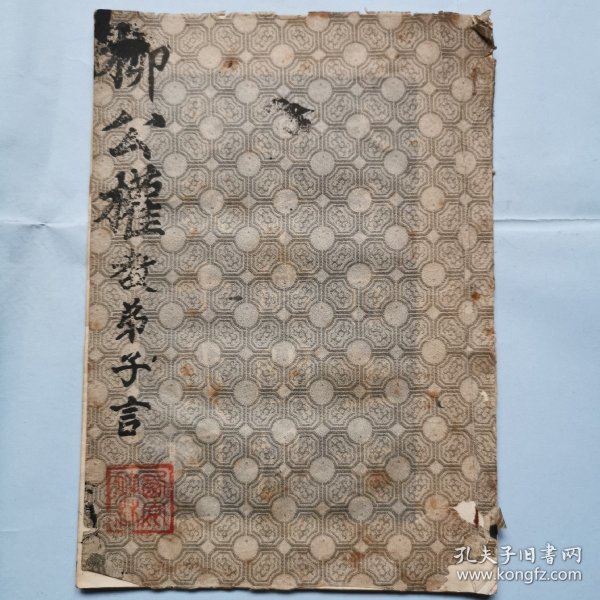 柳公權教弟子言
孔夫子旧書网
www.kongfz.com